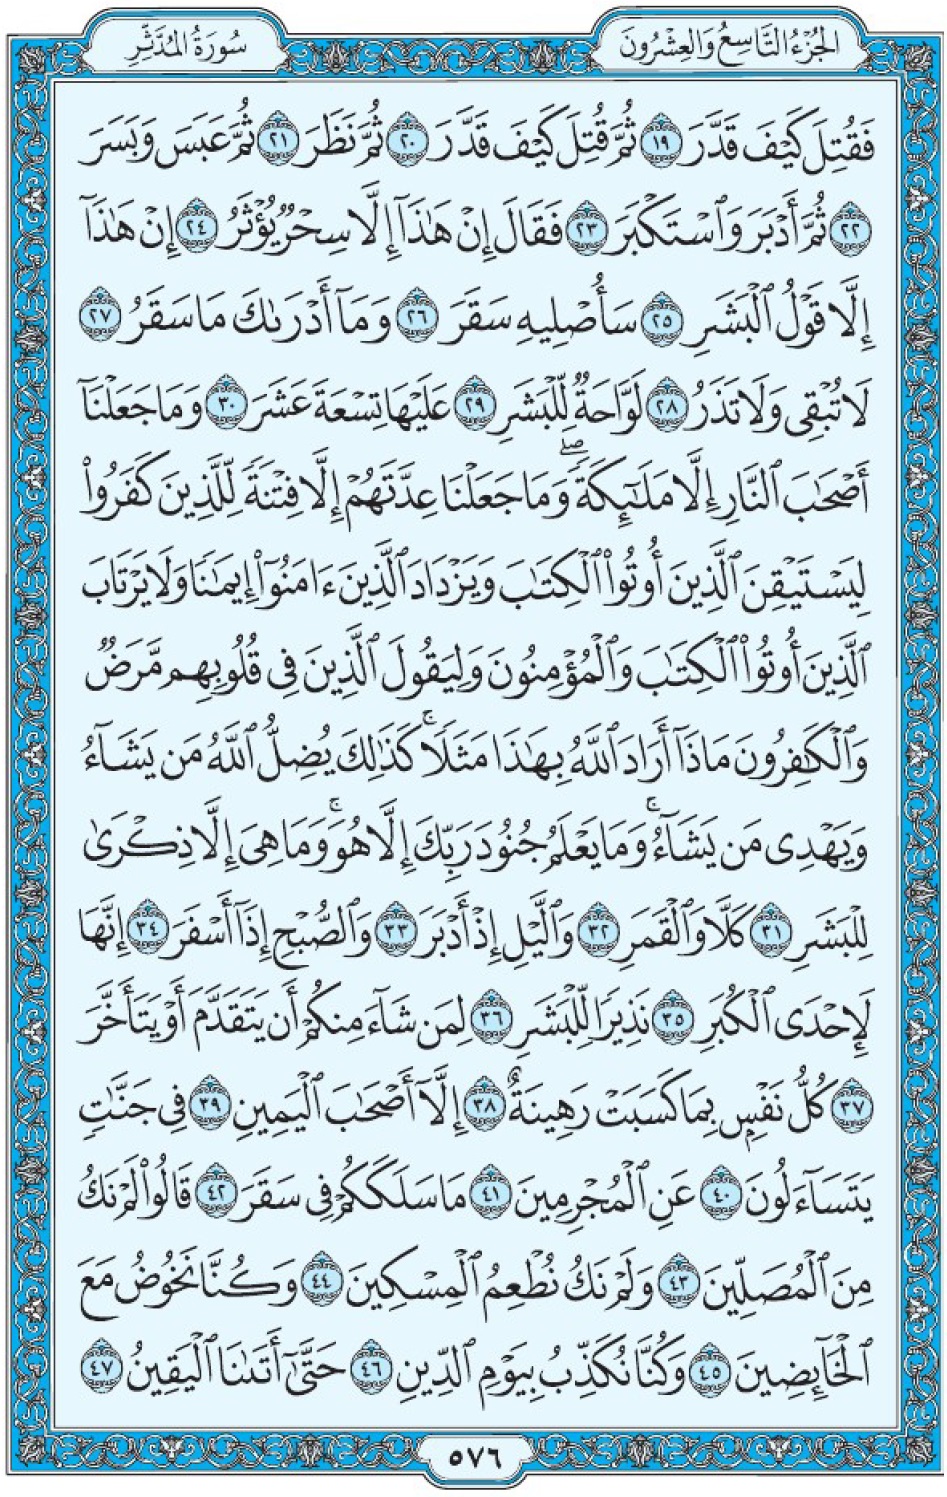 الجُزْءُ التَّاسِعُ وَالعِشْرُونَ
سُورَةُ المُدَّثِّرِ
فَقُتِلَ كَيْفَ قَدَّرَ ١٩ ثُمَّ قُتِلَ كَيْفَ قَدَّرَ ٢٠ ثُمَّ نَظَرَ ٢١ ثُمَّ عَبَسَ وَبَسَرَ
٢٢ ثُمَّ أَدْبَرَ وَٱسْتَكْبَرَ ٢٣ فَقَالَ إِنْ هَٰذَآ إِلَّا سِحْرٌ يُؤْثَرُ ٢٤ إِنْ هَٰذَآ
إِلَّا قَوْلُ ٱلْبَشَرِ ٢٥ سَأُصْلِيهِ سَقَرَ ٢٦ وَمَآ أَدْرَىٰكَ مَا سَقَرُ ٢٧
لَا تُبْقِى وَلَا تَذَرُ ٢٨ لَوَّاحَةٌ لِّلْبَشَرِ ٢٩ عَلَيْهَا تِسْعَةَ عَشَرَ ٣٠ وَمَا جَعَلْنَآ
أَصْحَٰبَ ٱلنَّارِ إِلَّا مَلَٰٓئِكَةً ۖ وَمَا جَعَلْنَا عِدَّتَهُمْ إِلَّا فِتْنَةً لِّلَّذِينَ كَفَرُوا۟
لِيَسْتَيْقِنَ ٱلَّذِينَ أُوتُوا۟ ٱلْكِتَٰبَ وَيَزْدَادَ ٱلَّذِينَ ءَامَنُوٓا۟ إِيمَٰنًا وَلَا يَرْتَابَ
ٱلَّذِينَ أُوتُوا۟ ٱلْكِتَٰبَ وَٱلْمُؤْمِنُونَ وَلِيَقُولَ ٱلَّذِينَ فِى قُلُوبِهِم مَّرَضٌ
وَٱلْكَٰفِرُونَ مَاذَآ أَرَادَ ٱللَّهُ بِهَٰذَا مَثَلًا ۚ كَذَٰلِكَ يُضِلُّ ٱللَّهُ مَن يَشَآءُ
وَيَهْدِى مَن يَشَآءُ ۚ وَمَا يَعْلَمُ جُنُودَ رَبِّكَ إِلَّا هُوَ ۚ وَمَا هِىَ إِلَّا ذِكْرَىٰ
لِلْبَشَرِ ٣١ كَلَّا وَٱلْقَمَرِ ٣٢ وَٱلَّيْلِ إِذْ أَدْبَرَ ٣٣ وَٱلصُّبْحِ إِذَآ أَسْفَرَ ٣٤ إِنَّهَا
لَإِحْدَى ٱلْكُبَرِ ٣٥ نَذِيرًا لِّلْبَشَرِ ٣٦ لِمَن شَآءَ مِنكُمْ أَن يَتَقَدَّمَ أَوْ يَتَأَخَّرَ
٣٧ كُلُّ نَفْسٍۭ بِمَا كَسَبَتْ رَهِينَةٌ ٣٨ إِلَّآ أَصْحَٰبَ ٱلْيَمِينِ ٣٩ فِى جَنَّٰتٍ
يَتَسَآءَلُونَ ٤٠ عَنِ ٱلْمُجْرِمِينَ ٤١ مَا سَلَكَكُمْ فِى سَقَرَ ٤٢ قَالُوا۟ لَمْ نَكُ
مِنَ ٱلْمُصَلِّينَ ٤٣ وَلَمْ نَكُ نُطْعِمُ ٱلْمِسْكِينَ ٤٤ وَكُنَّا نَخُوضُ مَعَ
ٱلْخَآئِضِينَ ٤٥ وَكُنَّا نُكَذِّبُ بِيَوْمِ ٱلدِّينِ ٤٦ حَتَّىٰٓ أَتَىٰنَا ٱلْيَقِينُ ٤٧
٥٧٦